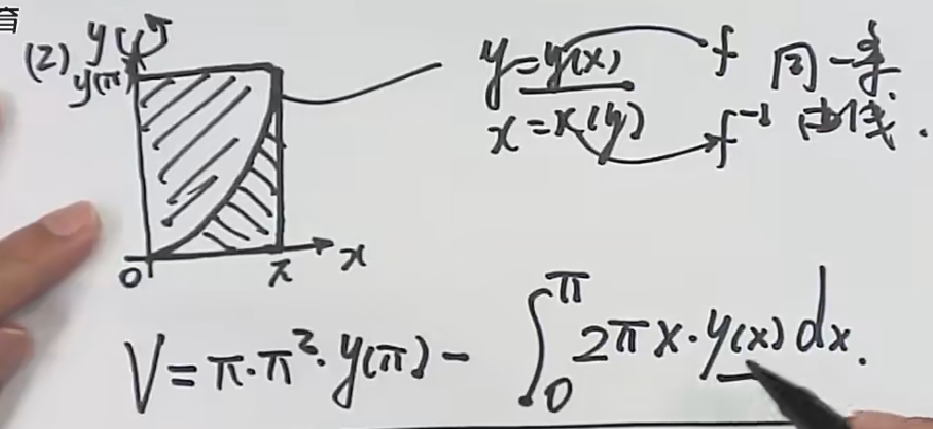 育
(2) y
y(π)
0 π x
y=y(x) f 同一条
x=x(y) f⁻¹ 曲线.
V=π·π²·y(π)-∫₀^π 2πx·y(x)dx.